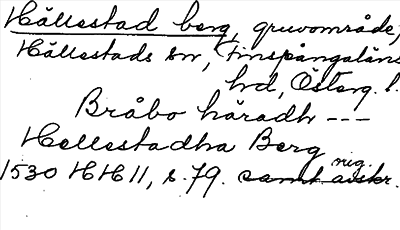 Hällestad berg, gruvområde,
Hällestads sn, Finspångaläns
hd, Österg. l.
Bråbo häradh ---
Hellestadha Berg
nig.
1530 HH II, s. 79. samt avskr.